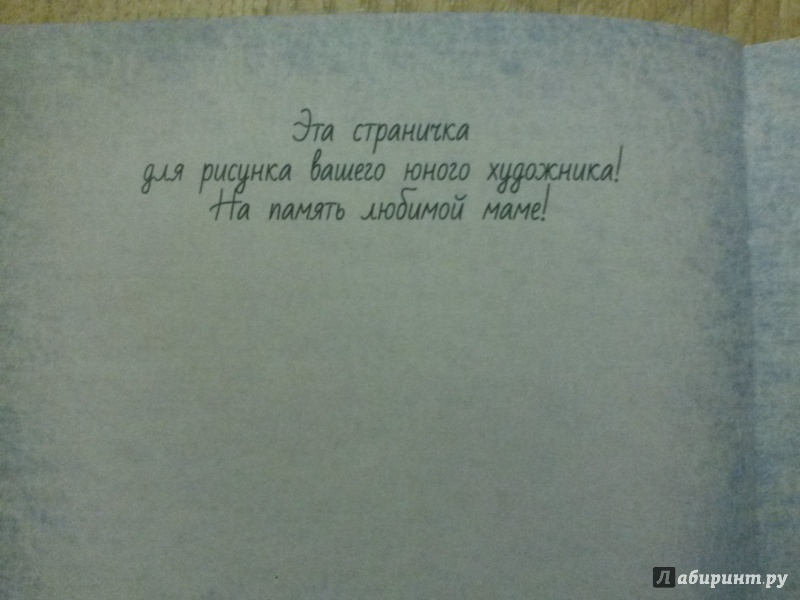 Эта страничка
для рисунка вашего юного художника!
На память любимой маме!
Лабиринт.ру